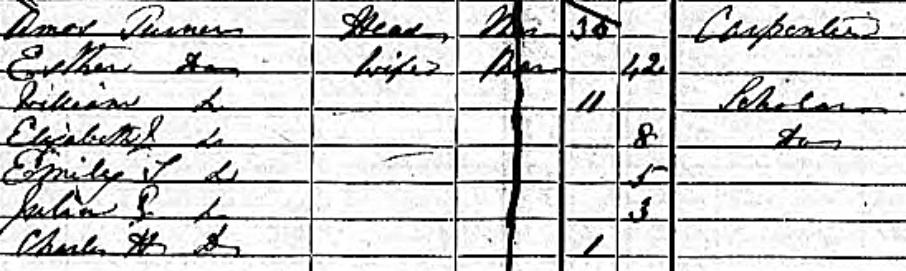 Amos Turner Head Mar 36 Carpenter
Esther Do Wife Mar 42
William Do 11 Scholar
Elizabeth J Do 8 Do
Emily S Do 5
Julia E Do 3
Charles H Do 1